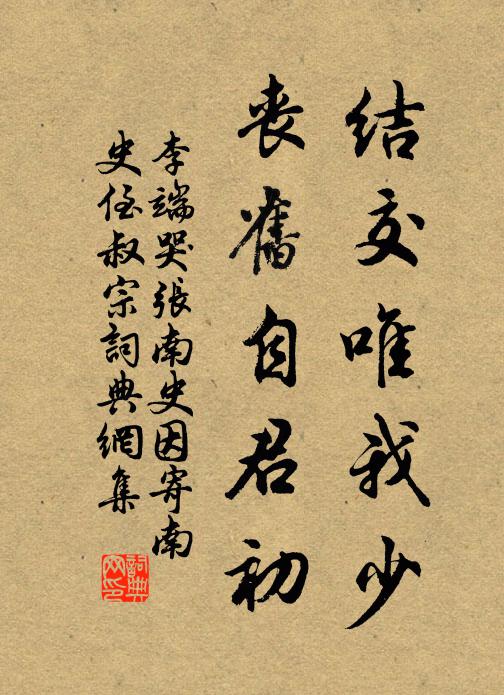 结交唯我少
丧舊自君初
李端哭張南史因寄南
史侄叔宗詞典網集
詞典网印